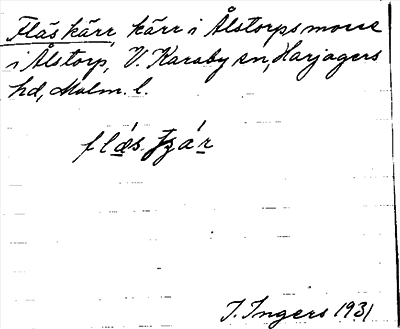 Fläskärr, kärr i Ålstorps mosse
i Ålstorp, V. Karaby sn, Harjagers
hd, Malm. l.
I. Ingers 1931